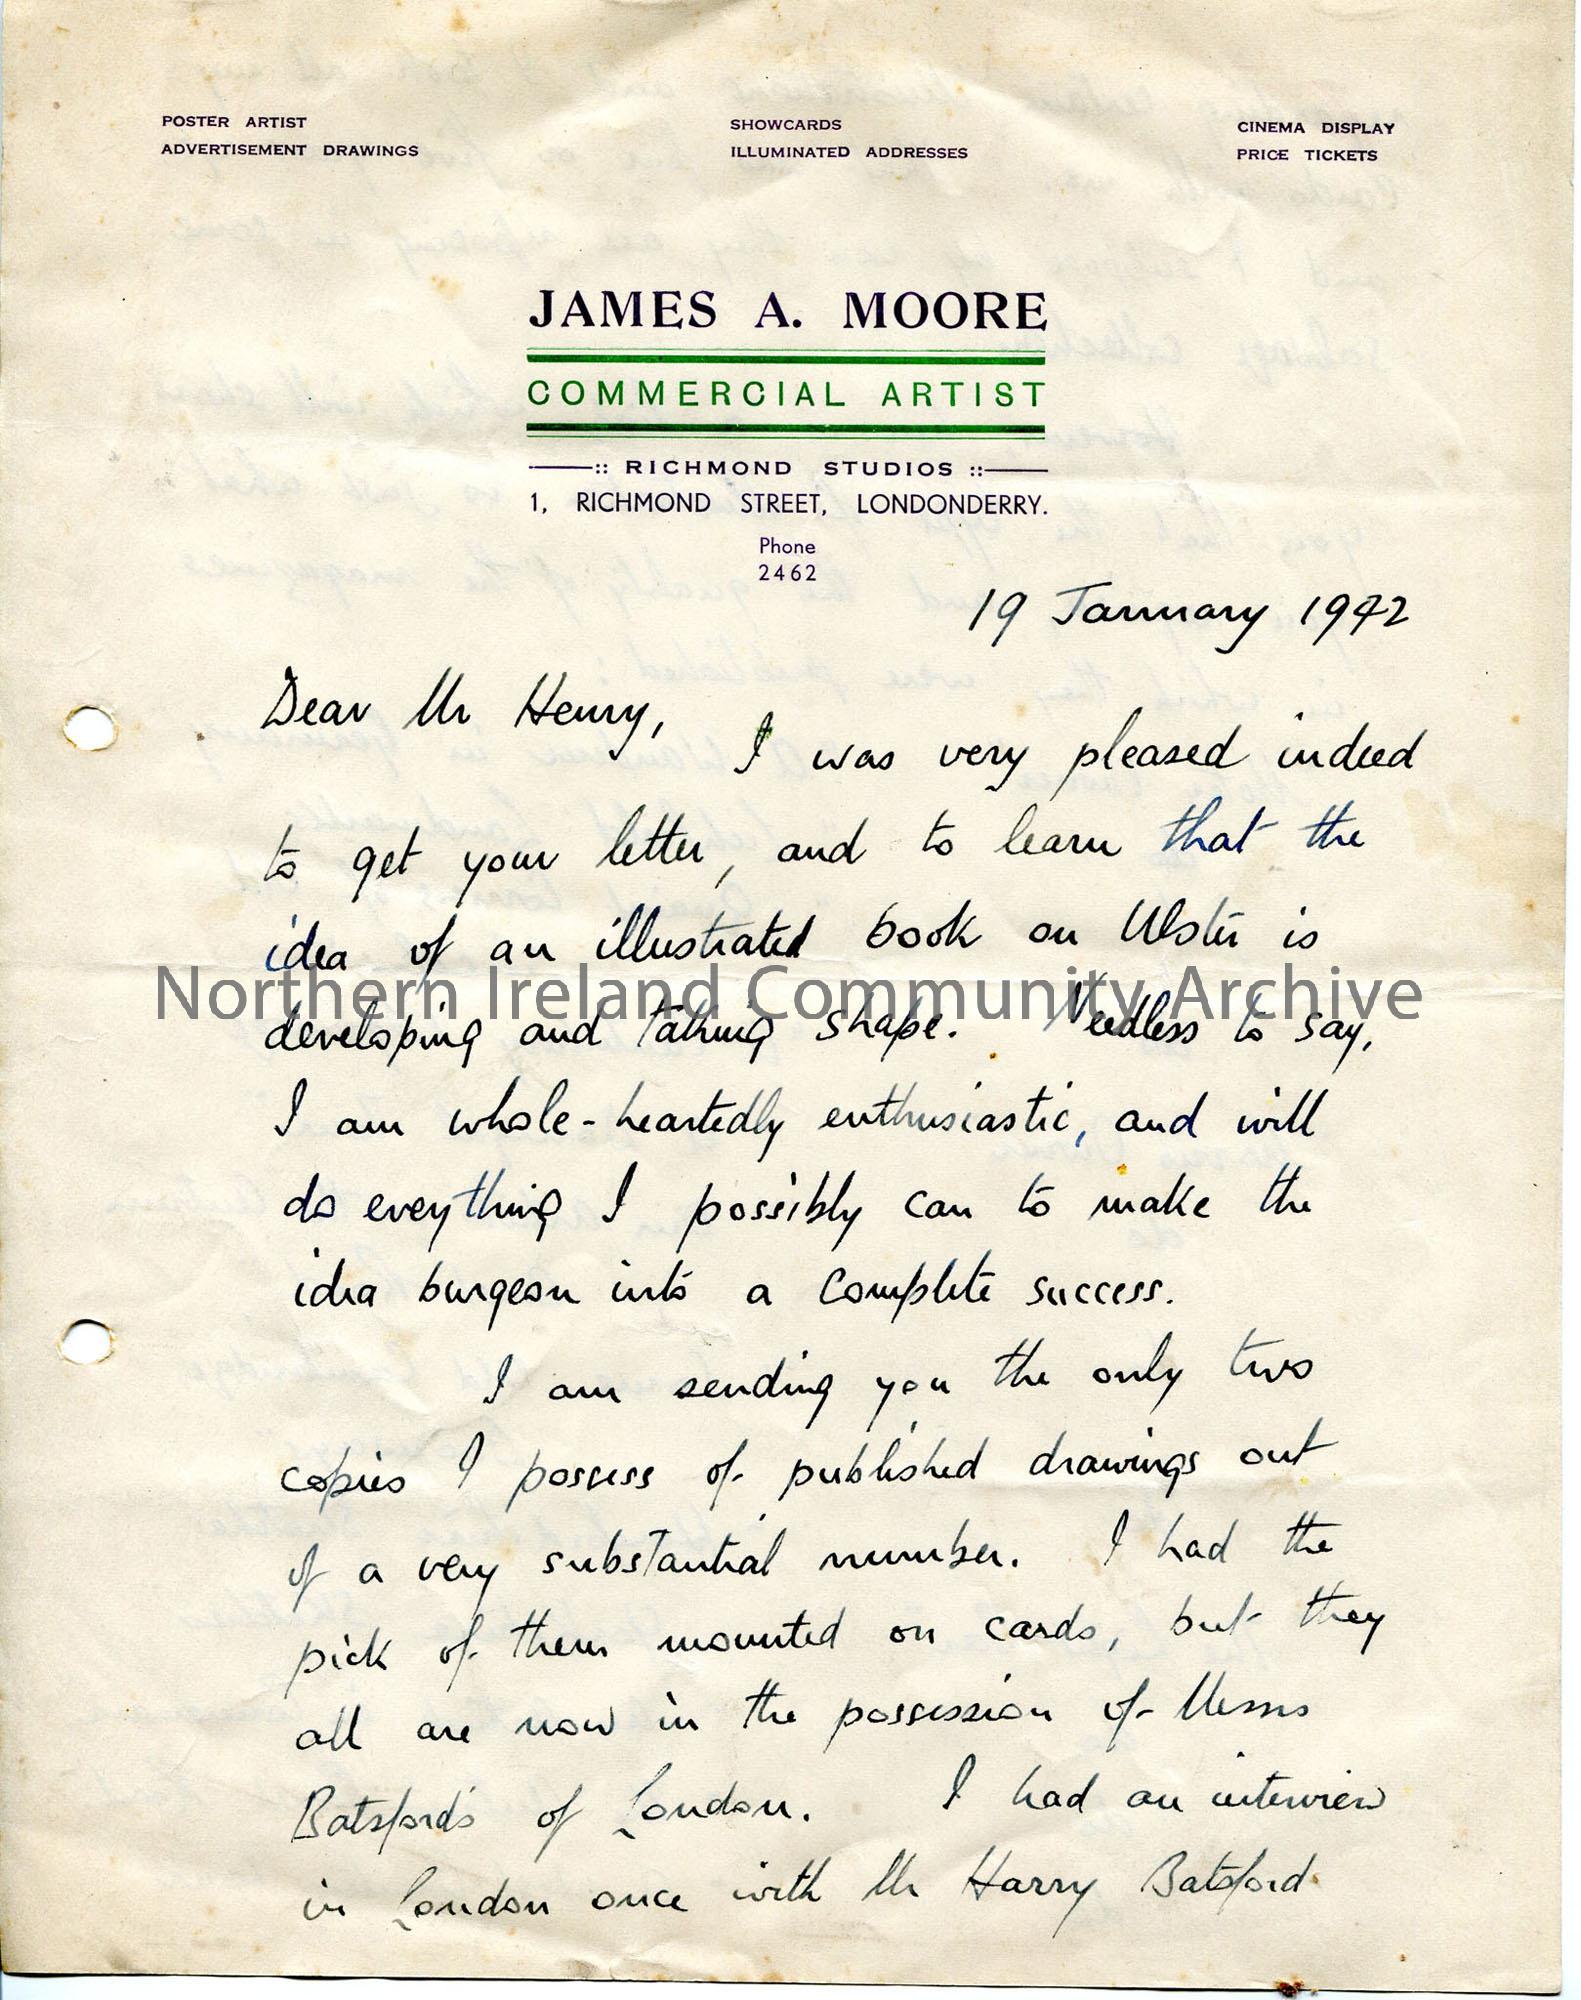 POSTER ARTIST
ADVERTISEMENT DRAWINGS
SHOWCARDS
ILLUMINATED ADDRESSES
CINEMA DISPLAY
PRICE TICKETS
JAMES A. MOORE
COMMERCIAL ARTIST
:: RICHMOND STUDIOS ::
1, RICHMOND STREET, LONDONDERRY.
Phone
2462
19 January 1942
Dear Mr Henry,
I was very pleased indeed
to get your letter, and to learn that the
idea of an illustrated book on Ulster is
Northern Ireland Community Archive
developing and taking shape. Needless to say,
I am whole-heartedly enthusiastic, and will
do everything I possibly can to make the
idea burgeon into a complete success.
I am sending you the only two
copies I possess of published drawings out
of a very substantial number. I had the
pick of them mounted on cards, but they
all are now in the possession of Messrs
Batsford's of London. I had an interview
in London once with Mr Harry Batsford